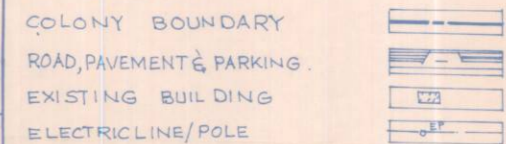 COLONY BOUNDARY
ROAD, PAVEMENT & PARKING.
EXISTING BUILDING
ELECTRICLINE/POLE EP